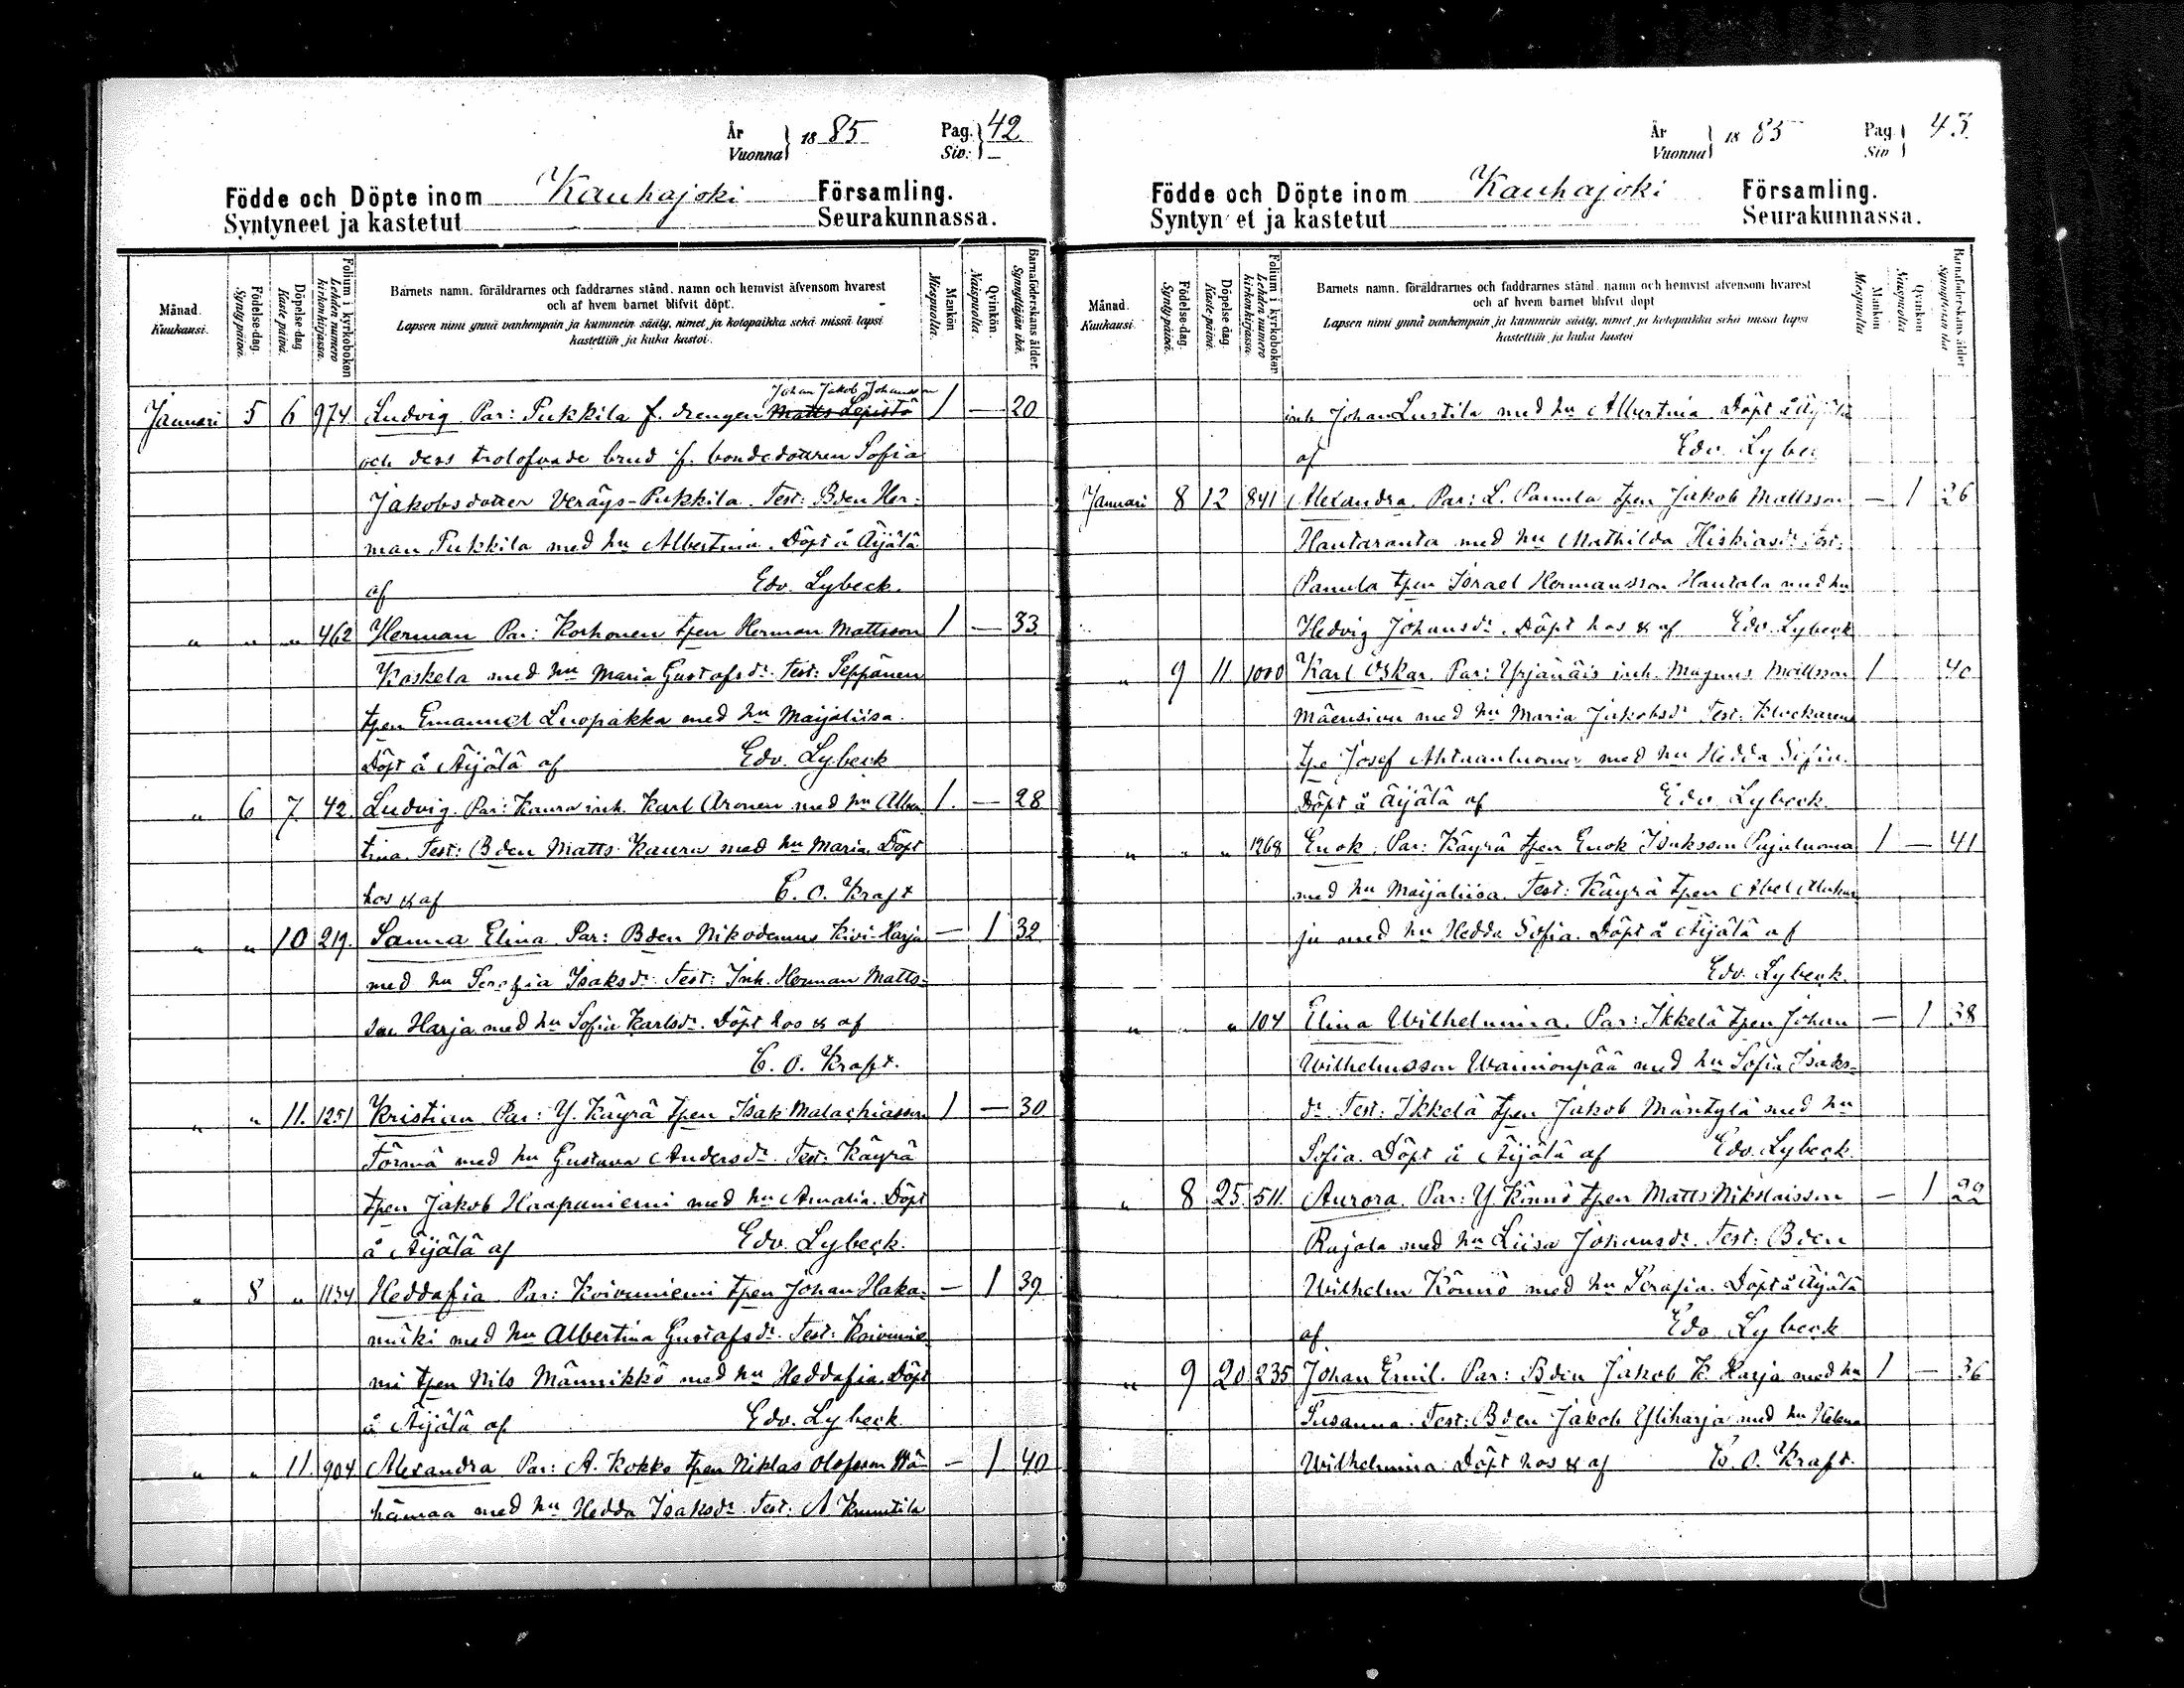 År Vuonna 1885 Pag. Siv: 42
Födde och Döpte inom Kauhajoki Församling.
Syntyneet ja kastetut Seurakunnassa.
Månad. Kuukausi.
Födelse-dag. Synty päivä.
Döpelse dag Kaste päivä.
Folium i kyrkoboken Lehden numero kirkonkirjassa.
Barnets namn, föräldrarnes och faddrarnes stånd, namn och hemvist äfvensom hvarest
och af hvem barnet blifvit döpt.
Lapsen nimi ynnä vanhempain ja kummein sääty, nimet ja kotopaikka sekä missä lapsi
kastettiin ja kuka kastoi.
Mankön. Miespuolia.
Qvinkön. Naispuolia.
Barnaföderskans ålder. Synnyttäjän ikä.
Johan Jakob Johansson
Januari 5 6 974 Ludvig Par: Pukkila f. drengen Matts Lepistö 1 — 20
och dess trolofvade brud f. bondedottren Sofia
Jakobsdotter Veräys-Pukkila. Test: Bden Her-
man Pukkila med hu Albertina. Döpt å Äijälä
af Edv. Lybeck.
" " " 462 Herman Par: Korhonen tpen Herman Mattsson 1 — 33
Koskela med hu Maria Gustafsdr. Test: Seppänen
tpen Emanuel Luopakka med hu Maijaliisa.
Döpt å Äijälä af Edv. Lybeck
" 6 7. 42 Ludvig. Par: Kaura inh. Karl Aronen med hu Alber- 1. — 28
tina. Test: Bden Matts Kaura med hu Maria. Döpt
hos & af C. O. Kraft
" " 10 219. Sanna Elina Par: Bden Nikodemus Kivi-Harja — 1 32
med hu Serafia Isaksdr. Test: Inh. Herman Matts-
son Harja med hu Sofia Karlsdr. Döpt hos & af
C. O. Kraft.
" " 11. 1251 Kristian Par: Y. Käyrä tpen Isak Malachiasson 1 — 30
Törmä med hu Gustava Andersdr. Test: Käyrä
tpen Jakob Haapaniemi med hu Amalia. Döpt
å Äijälä af Edv. Lybeck.
" 8 " 1134 Heddafia Par: Koivuniemi tpen Johan Haka- — 1 39
mäki med hu Albertina Gustafsdr. Test: Koivunie-
mi tpen Nils Männikkö med hu Heddafia. Döpt
å Äijälä af Edv. Lybeck.
" " 11. 904 Alexandra Par: A. Kokko tpen Niklas Olofsson Wä- — 1 40
hämaa med hu Hedda Isaksdr. Test: A
År Vuonna 1885 Pag. Siv 43.
Födde och Döpte inom Kauhajoki Församling.
Syntyn et ja kastetut Seurakunnassa.
Månad. Kuukausi
Födelse-dag. Synty päivä.
Döpelse dag Kaste päivä.
Folium i kyrkoboken Lehden numero kirkonkirjassa.
Barnets namn, föräldrarnes och faddrarnes stånd, namn och hemvist äfvensom hvarest
och af hvem barnet blifvit döpt
Lapsen nimi ynnä vanhempain ja kummein sääty, nimet ja kotopaikka sekä missä lapsi
kastettiin ja kuka kastoi
Mankön Miespuolia
Qvinkön Naispuolia
Barnaföderskans ålder Synnyttäjän ikä
inh Johan Lustila med hu Albertina Döpt å Äijälä
af Edv. Lybe
Januari 8 12 841 Alexandra. Par: L. Panula tpen Jakob Mattsson — 1 26
Hautaranta med hu Mathilda Hiskiasdr. Test:
Panula tpen Israel Hermansson Hautala med hu
Hedvig Johansdr. Döpt hos & af Edv. Lybeck
" 9 11 1000 Karl Oskar. Par: Yrjänäis inh. Magnus Mattsson 1 40
Mäensivu med hu Maria Jakobsdr Test: Klockarens
tpe Josef Ahvenluoma med hu Hedda Sofia.
Döpt å Äijälä af Edv Lybeck.
" " " 1268 Enok. Par: Käyrä tpen Enok Isaksson Pajuluoma 1 — 41
med hu Maijaliisa. Test: Käyrä tpen Abel
ju med hu Hedda Sofia. Döpt å Äijälä af
Edv. Lybeck.
" " " 104 Elina Wilhelmina. Par: Ikkelä tpen Johan — 1 38
Wilhelmsson Wainionpää med hu Sofia Isaks-
dr. Test: Ikkelä tpen Jakob Mäntylä med hu
Sofia. Döpt å Äijälä af Edv. Lybeck.
" 8 25. 511. Aurora. Par: Y Könnö tpen Matts Nikolaisson — 1 22
Rajala med hu Liisa Johansdr. Test: Bden
Wilhelm Könnö med hu Serafia. Döpt å Äijälä
af Edv Lybeck
" 9 20 235 Johan Emil. Par: Bden Jakob K. Harja med hu 1 — 36
Susanna. Test: Bden Jakob Yliharja med hu Helena
Wilhelmina. Döpt hos & af C. O. Kraft.